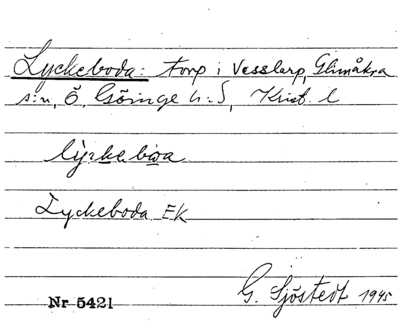 Lyckeboda: torp i Vesslarp, Glimåkra
s:n, Ö. Göinge h:d, Krist. l
Lyckeboda EK
G. Sjöstedt 1945
Nr 5421